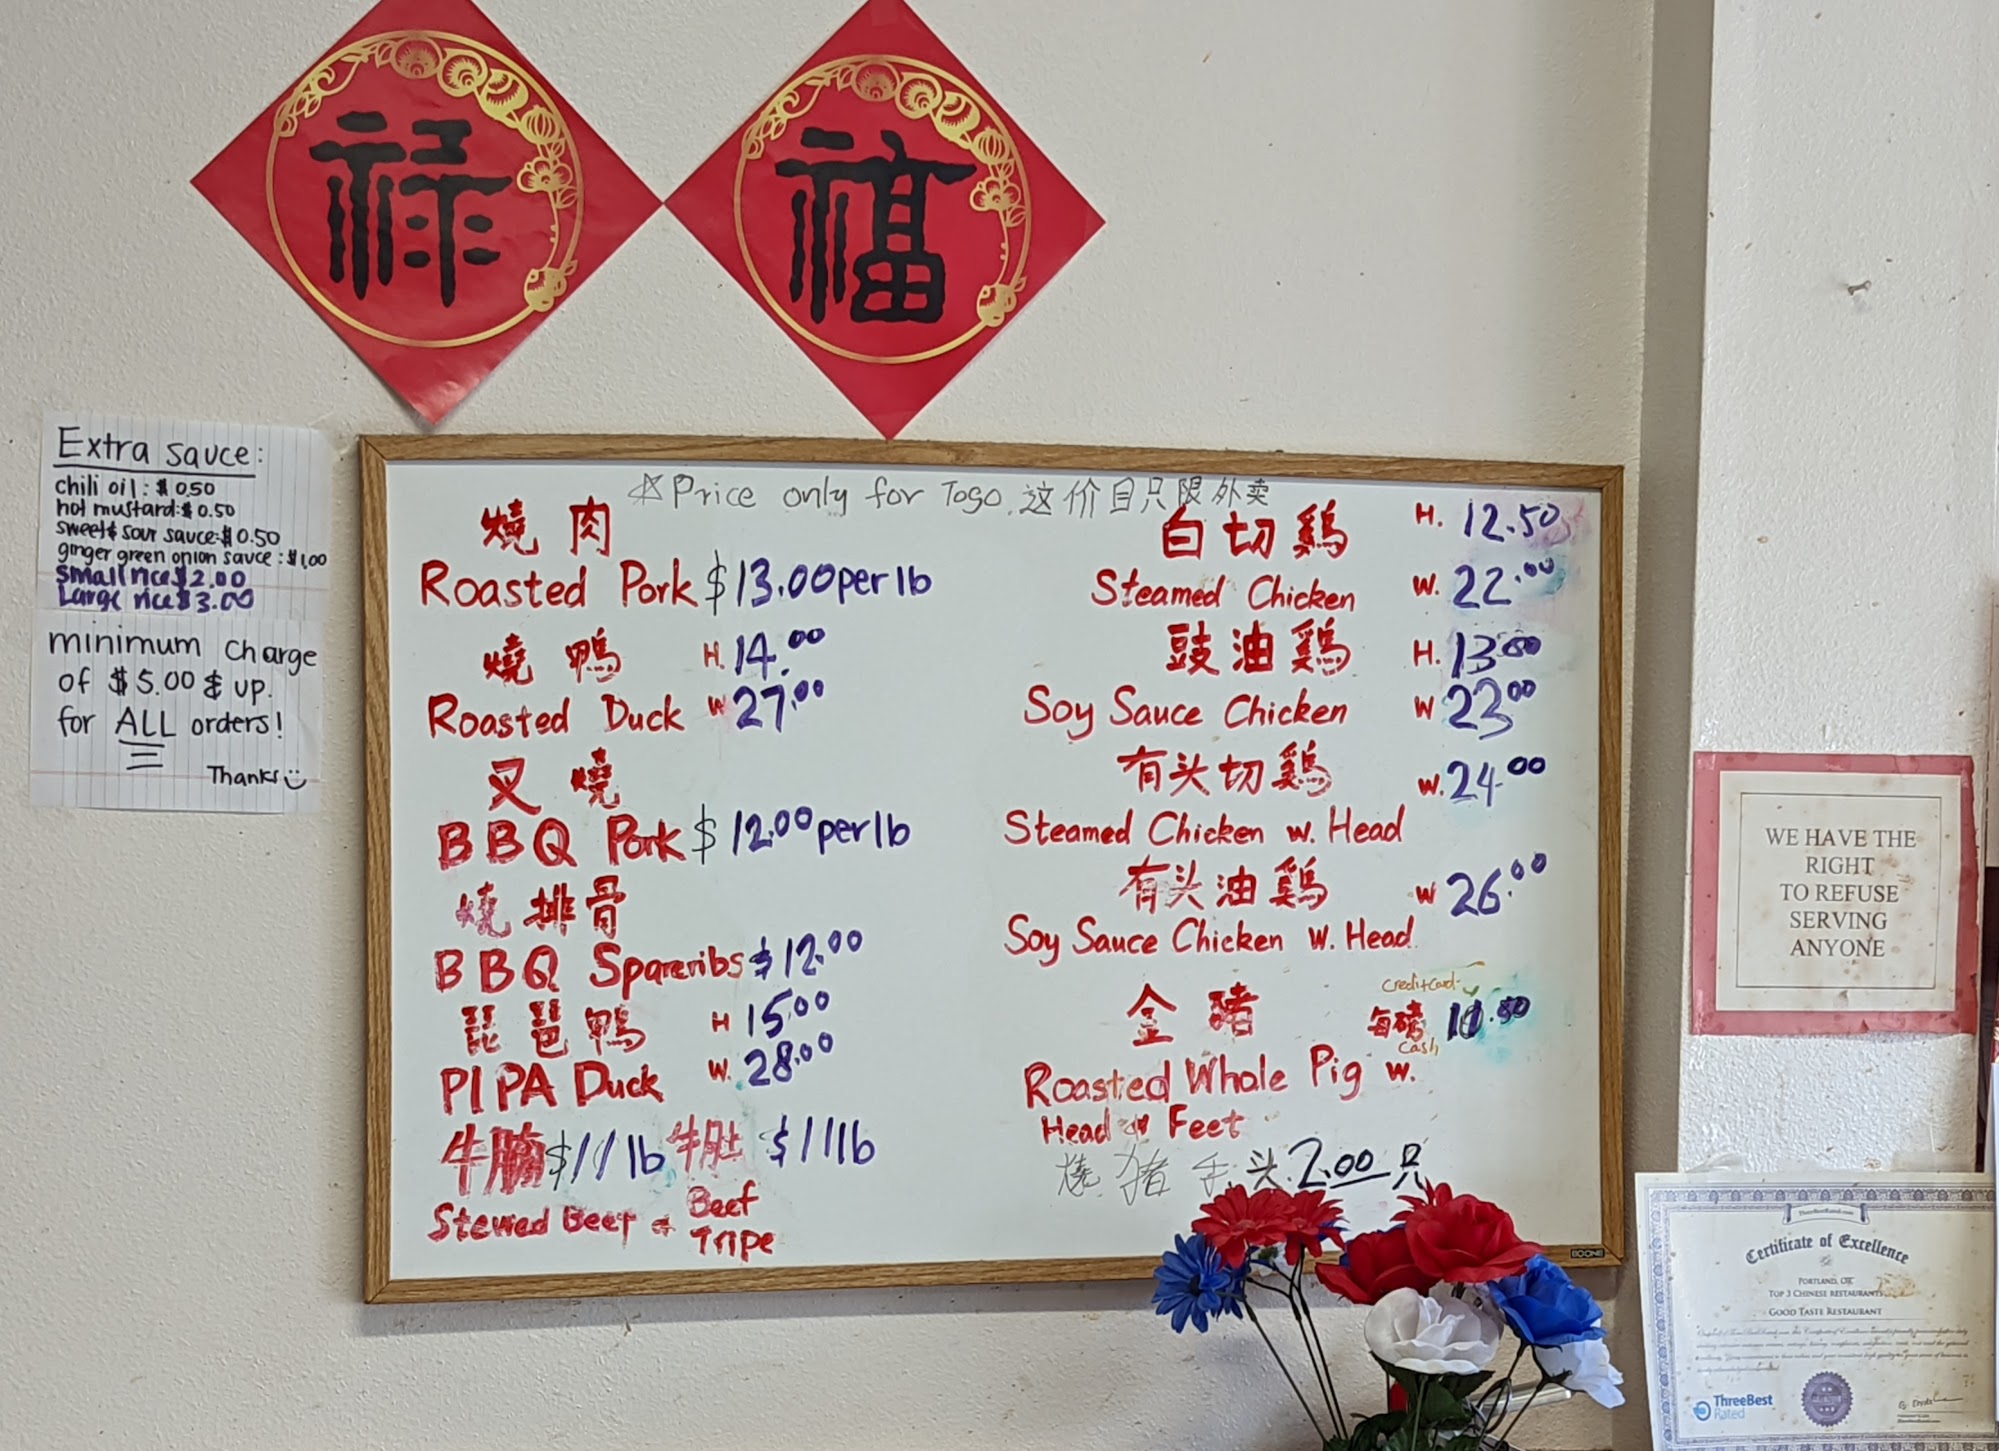 禄
福
Extra sauce:
chili oil: $0.50
hot mustard: $0.50
sweet & sour sauce: $0.50
ginger green onion sauce: $1.00
Small rice $2.00
Large rice $3.00
minimum charge
of $5.00 & up.
for ALL orders!
Thanks
☆Price only for Togo.这价目只限外卖
燒肉
Roasted Pork $13.00 per lb
燒鴨 H. 14.00
Roasted Duck W 27.00
叉燒
BBQ Pork $12.00 per lb
燒排骨
BBQ Spareribs $12.00
琵琶鴨 H 15.00
PIPA Duck W. 28.00
牛腩 $11 lb 牛肚 $11 lb
Stewed Beef & Beef
Tripe
白切鷄 H. 12.50
Steamed Chicken W. 22.00
豉油鷄 H. 13.00
Soy Sauce Chicken W 23.00
有头切鷄 W. 24.00
Steamed Chicken w. Head
有头油鷄 W 26.00
Soy Sauce Chicken w. Head.
Credit card
金豬 每磅
Cash
Roasted Whole Pig w.
Head & Feet
燒猪手.头.2.00只
BOONE
WE HAVE THE
RIGHT
TO REFUSE
SERVING
ANYONE
ThreeBestRated.com
Certificate of Excellence
PORTLAND, OR
TOP 3 CHINESE RESTAURANTS
GOOD TASTE RESTAURANT
ThreeBest
Rated